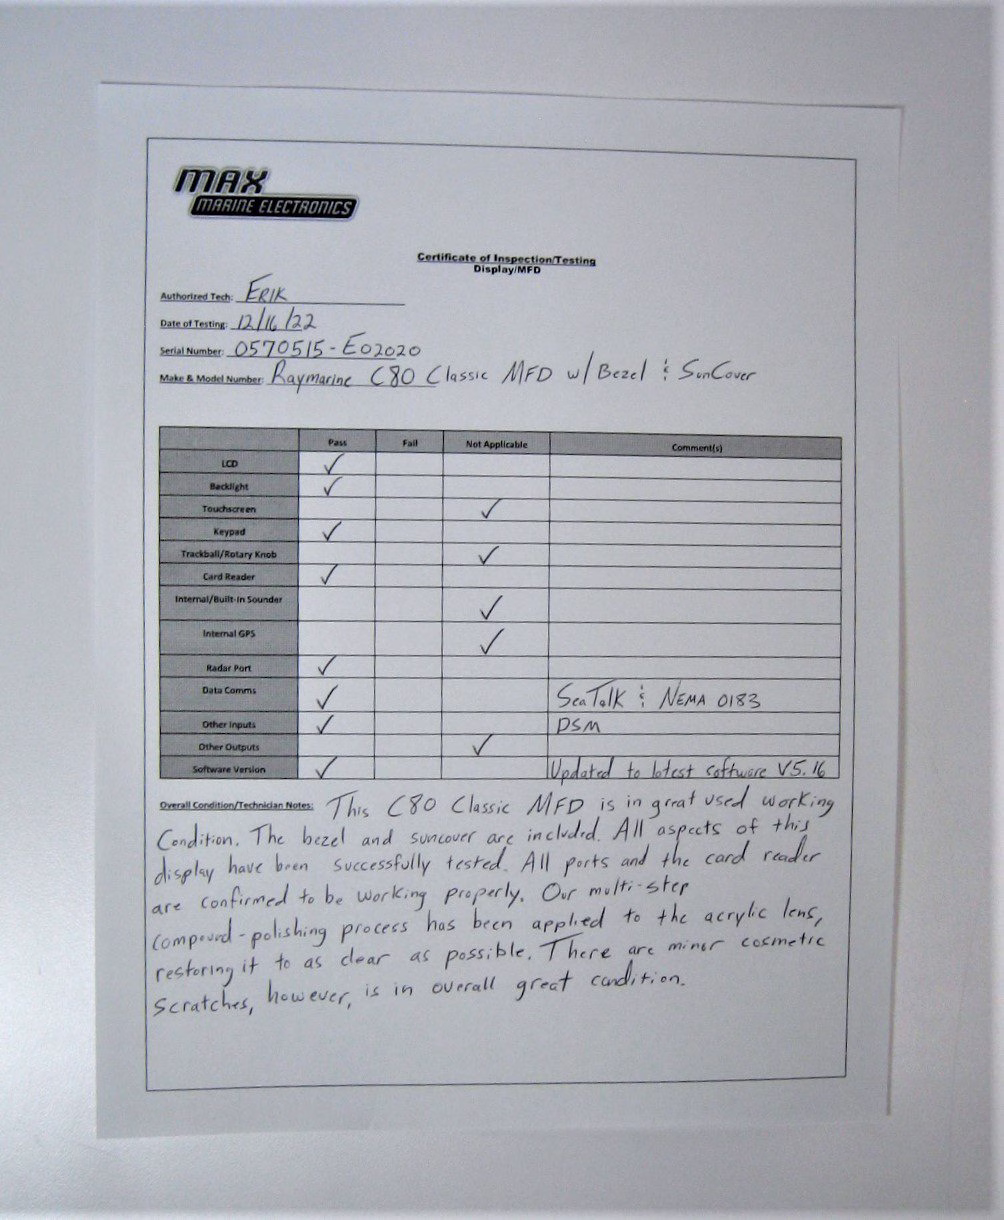 MAX
MARINE ELECTRONICS
Certificate of Inspection/Testing
Display/MFD
Authorized Tech: ERIK
Date of Testing: 12/16/22
Serial Number: 0570515-E02020
Make & Model Number: Raymarine C80 Classic MFD w/Bezel & SunCover
Pass Fail Not Applicable Comment(s)
LCD ✓
Backlight ✓
Touchscreen ✓
Keypad ✓
Trackball/Rotary Knob ✓
Card Reader ✓
Internal/Built-In Sounder ✓
Internal GPS ✓
Radar Port ✓
Data Comms ✓ SeaTalk & NEMA 0183
Other Inputs ✓ DSM
Other Outputs ✓
Software Version ✓ Updated to latest software V5.16
Overall Condition/Technician Notes: This C80 Classic MFD is in great used working
Condition. The bezel and suncover are included. All aspects of this
display have been successfully tested. All ports and the card reader
are confirmed to be working properly. Our multi-step
compound-polishing process has been applied to the acrylic lens,
restoring it to as clear as possible. There are minor cosmetic
Scratches, however, is in overall great condition.